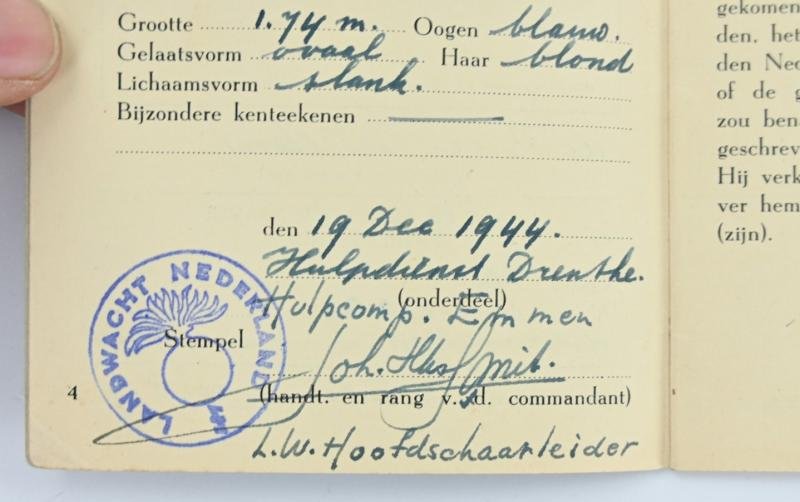 Grootte 1.74 m. Oogen blauw.
Gelaatsvorm ovaal Haar blond
Lichaamsvorm slank.
Bijzondere kenteekenen
den 19 Dec 1944.
Hulpdienst Drenthe.
(onderdeel)
Hulpcomp. Emmen
LANDWACHT NEDERLAND
Stempel
Joh.
(handt. en rang v. d. commandant)
L.W. Hoofdschaarleider
4
gekomen
den, het
den Ned
of de g
zou ben
geschrev
Hij verk
ver hem
(zijn).